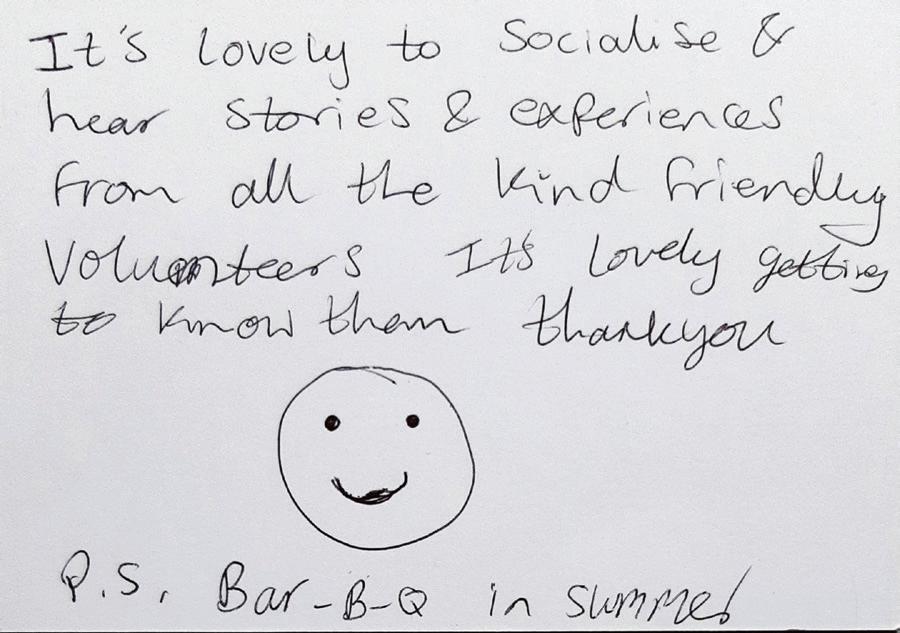 It's lovely to socialise &
hear stories & experiences
from all the kind friendly
Volunteers It's lovely getting
to know them thankyou
P.S. Bar-B-Q in summer